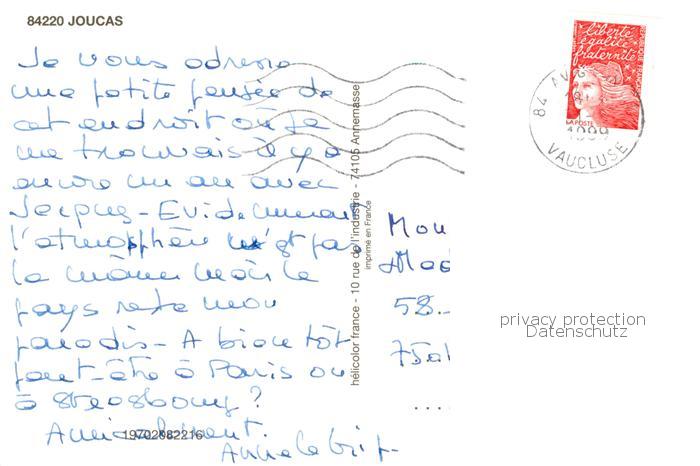 84220 JOUCAS
Je vous adresse
une petite pensée de
cet endroit où je
me trouvais il y a
encore un an avec
Jacques - Evidemment
l'atmosphère n'est pas
la même mais le
pays reste mon
paradis - A bientôt
peut-être à Paris ou
à Strasbourg ?
Amicalement.
19702082216
hélicolor france - 10 rue de l'industrie - 74105 Annemasse
imprimé en France
58
liberté
égalité
fraternité
LA POSTE
84
VAUCLUSE
privacy protection
Datenschutz